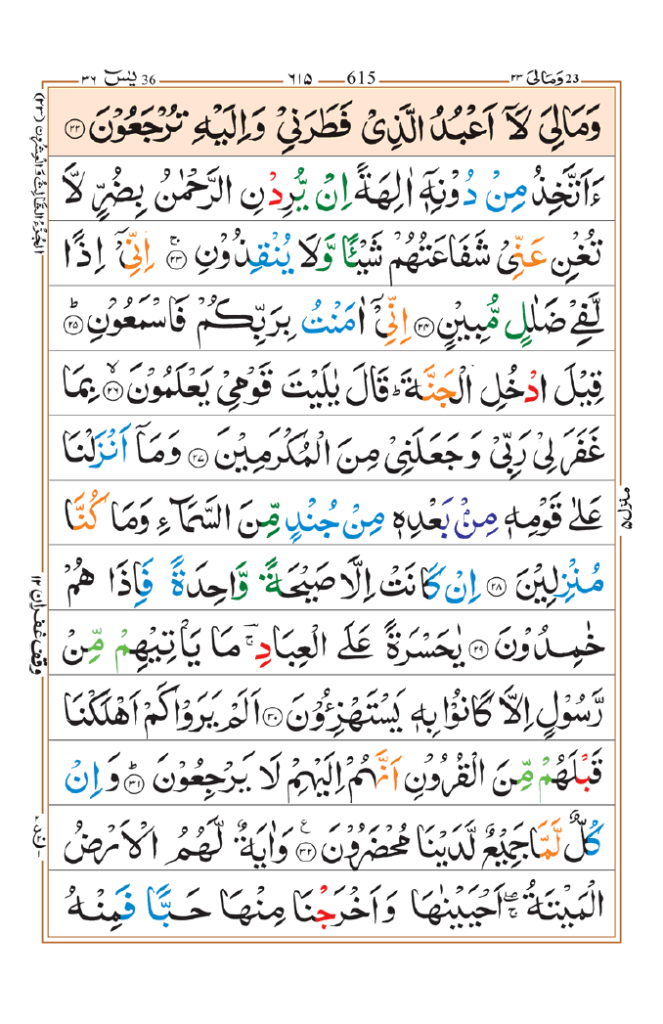 یٰسٓ 36 ٣٦
615 ٦١٥
وَمَالِیَ 23 ٢٣
وَمَالِیَ لَاۤ اَعْبُدُ الَّذِیْ فَطَرَنِیْ وَاِلَیْهِ تُرْجَعُوْنَ ﴿٢٢﴾
ءَاَتَّخِذُ مِنْ دُوْنِهٖۤ اٰلِهَةً اِنْ یُّرِدْنِ الرَّحْمٰنُ بِضُرٍّ لَّا
تُغْنِ عَنِّیْ شَفَاعَتُهُمْ شَیْـًٔا وَّلَا یُنْقِذُوْنِ ﴿٢٣﴾ۚ اِنِّیْۤ اِذًا
لَّفِیْ ضَلٰلٍ مُّبِیْنٍ ﴿٢٤﴾ اِنِّیْۤ اٰمَنْتُ بِرَبِّكُمْ فَاسْمَعُوْنِ ﴿٢٥﴾ؕ
قِیْلَ ادْخُلِ الْجَنَّةَ ؕ قَالَ یٰلَیْتَ قَوْمِیْ یَعْلَمُوْنَ ﴿٢٦﴾ۙ بِمَا
غَفَرَ لِیْ رَبِّیْ وَجَعَلَنِیْ مِنَ الْمُكْرَمِیْنَ ﴿٢٧﴾ وَمَاۤ اَنْزَلْنَا
عَلٰی قَوْمِهٖ مِنْۢ بَعْدِهٖ مِنْ جُنْدٍ مِّنَ السَّمَآءِ وَمَا كُنَّا
مُنْزِلِیْنَ ﴿٢٨﴾ اِنْ كَانَتْ اِلَّا صَیْحَةً وَّاحِدَةً فَاِذَا هُمْ
خٰمِدُوْنَ ﴿٢٩﴾ یٰحَسْرَةً عَلَی الْعِبَادِ ۚؔ مَا یَاْتِیْهِمْ مِّنْ
رَّسُوْلٍ اِلَّا كَانُوْا بِهٖ یَسْتَهْزِءُوْنَ ﴿٣٠﴾ اَلَمْ یَرَوْا كَمْ اَهْلَكْنَا
قَبْلَهُمْ مِّنَ الْقُرُوْنِ اَنَّهُمْ اِلَیْهِمْ لَا یَرْجِعُوْنَ ﴿٣١﴾ؕ وَاِنْ
كُلٌّ لَّمَّا جَمِیْعٌ لَّدَیْنَا مُحْضَرُوْنَ ﴿٣٢﴾ وَاٰیَةٌ لَّهُمُ الْاَرْضُ
الْمَیْتَةُ ۚۖ اَحْیَیْنٰهَا وَاَخْرَجْنَا مِنْهَا حَبًّا فَمِنْهُ
الْجُزْءُ الثَّالِثُ وَالْعِشْرُوْن (٢٣)
وقف غفران ١٢
منزل ٥